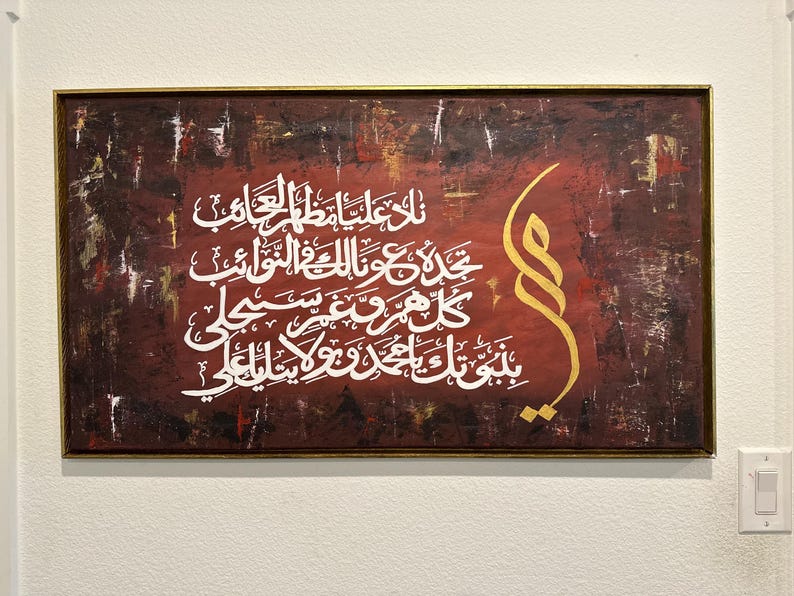 ناد عليا مظهر العجائب
تجده عونا لك في النوائب
كل هم و غم سينجلي
بنبوتك يا محمد و بولايتك يا علي
علي